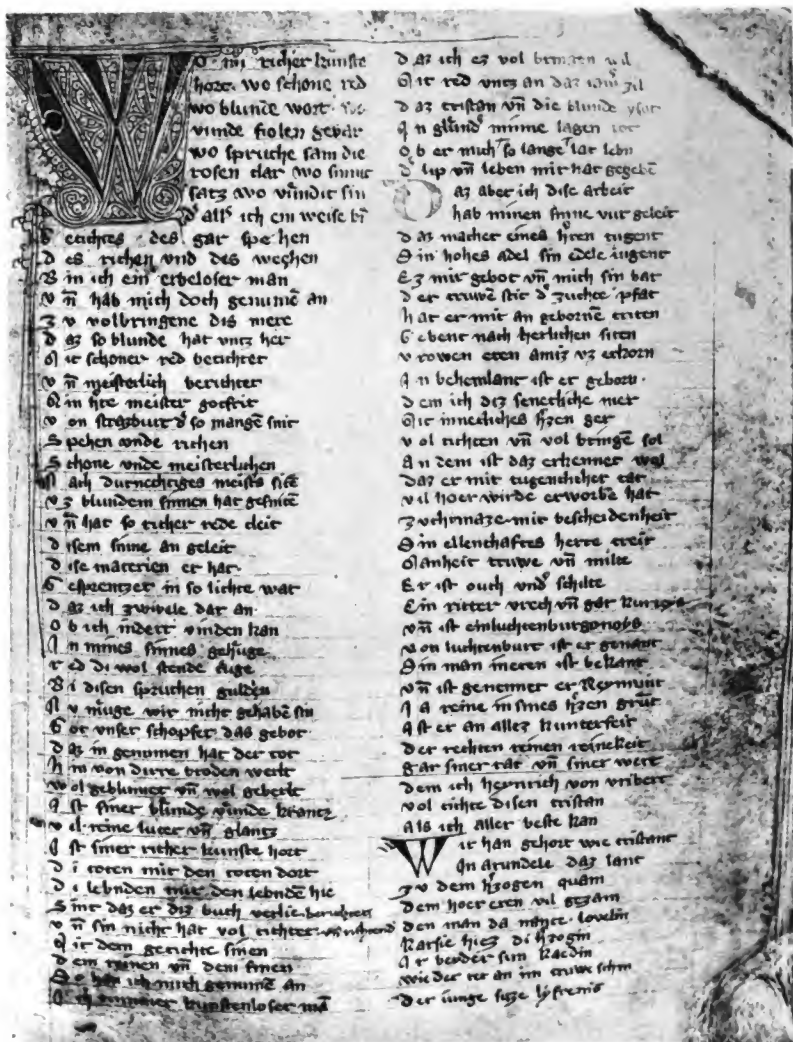 WO min richer kunste
hort. wo schone red
wo blunde wort. wo
vunde fiolen gevar
wo spruche sam die
rosen clar wo sinnic
satz wo vundic sin
d' all' ich ein weise bī
G etichtes des gar spehen
D es richen vnd des wehen
B in ich ein erbeloser man
v n̄ hab mich doch genumē an
Z v volbringene dis mere
D az so blunde hat vntz her
M it schoner red berichtet
v n̄ meisterlich berichtet
M in h're meister gotfrit
v on strazburc d' so mangē snit
S pehen vnde richen
S chone vnde meisterlichen
N ach durnechtiges meist's site
v z blundem sinnen hat gesnitē
v n̄ hat so richer rede cleit
D isem sinne an geleit
D ise materien er hat
G esprentzet in so lichte wat
D az ich zwivele dar an
O b ich indert vinden kan
I n mines sinnes gehuge
r ed di wol stende fuge
B i disen spruchen guldin
N v muge wir nicht gehabē sin
G ot vnser schopfer das gebot
D az in genomen hat der tot
H in von dirre broden werlt
w ol geblumet vn̄ wol geberlt
I st siner blunde vunde krantz
v il reine luter vn̄ glantz
I st siner richer kunste hort
D i toten mit den toten dort
D i lebnden mit den lebndē hie
S int daz er diz buch verlie
v n̄ sin nicht hat vol tichtet
M it dem getichte sinen
D em reinen vn̄ dem finen
S o han ich mich genumē an
I ch tummer kunstenloser mā
D az ich ez vol bringen wil
M it red vntz an daz zil
D az tristan vn̄ die blunde ysot
I n glund' minne lagen tot
O b er mich so lange lat lebn
D' lip vn̄ leben mir hat gegebē
Daz aber ich dise arbeit
hab minen sinne vur geleit
D az machet eines h'ren tugent
S in hohes adel sin edele iugent
E z mir gebot vn̄ mich sin bat
D er truwē stic d' zuchte pfat
H at er mit an gebornē triten
G ebent nach herlichen siten
v rowen eren amiz vz erkorn
I n behemlant ist er geborn.
D em ich diz senecliche mer
M it innecliches h'zen ger
v ol tichten vn̄ vol bringē sol
A n dem ist daz erkennet wol
Daz er mit tugentlicher tat
vil hoer wirde erworbē hat
Zucht maze mit bescheidenheit
S in ellenthaftes hertze treit
Manheit truwe vn̄ milte
Er ist ouch vnd' schilte
Ein ritter vrech vn̄ gar kurtoys
vn̄ ist ein luchtenburgonoys
von luchtenburc ist er genant
Sin nam in eren ist bekant
vn̄ ist genennet er Reymunt
Ja reine in sines h'zen grunt
Ist er an allez kunterfeit
Der rechten reinen reinekeit
gar siner tat vn̄ siner wort
Dem ich heynrich von vriberc
vol tichte disen tristan
Als ich aller beste kan
Wir han gehort wie tristant
In arundele daz lant
Zv dem h'zogen quam
Dem hoer eren vil gezam
Den man da nante. lovelin
karsie hiez di h'zogin
Ir beider sun kaedin
wie der tet an im truwe schin
Der iunge suze lyfrenis